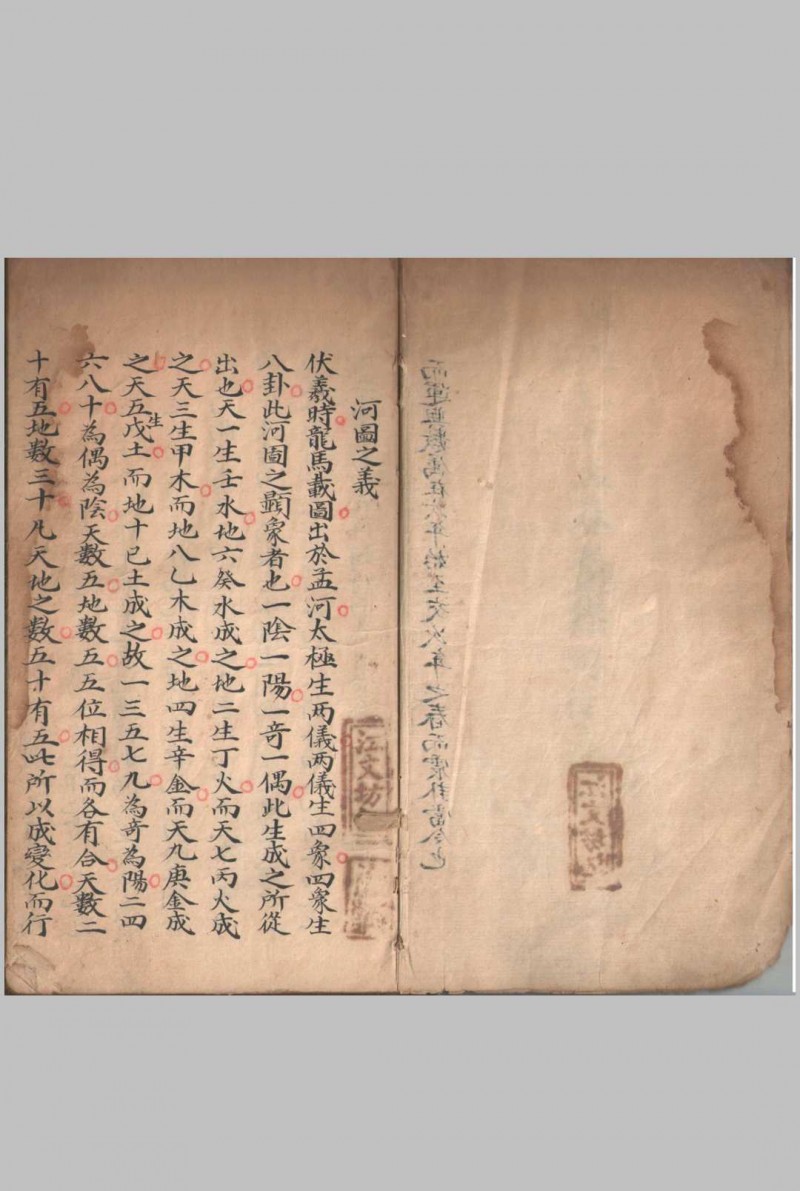 河圖之義
伏羲時龍馬載圖出於孟河太極生两儀两儀生四象四象生
八卦此河図之顯象者也一陰一陽一竒一偶此生成之所從
出也天一生壬水地六癸水成之地二生丁火而天七丙火成
之天三生甲木而地八乙木成之地四生辛金而天九庚金成
之天五生戊土而地十已土成之故一三五七九為竒為陽二四
六八十為偶為陰天數五地數五五位相得而各有合天數二
十有五地數三十凡天地之數五十有五此所以成變化而行
江文坊
江文坊